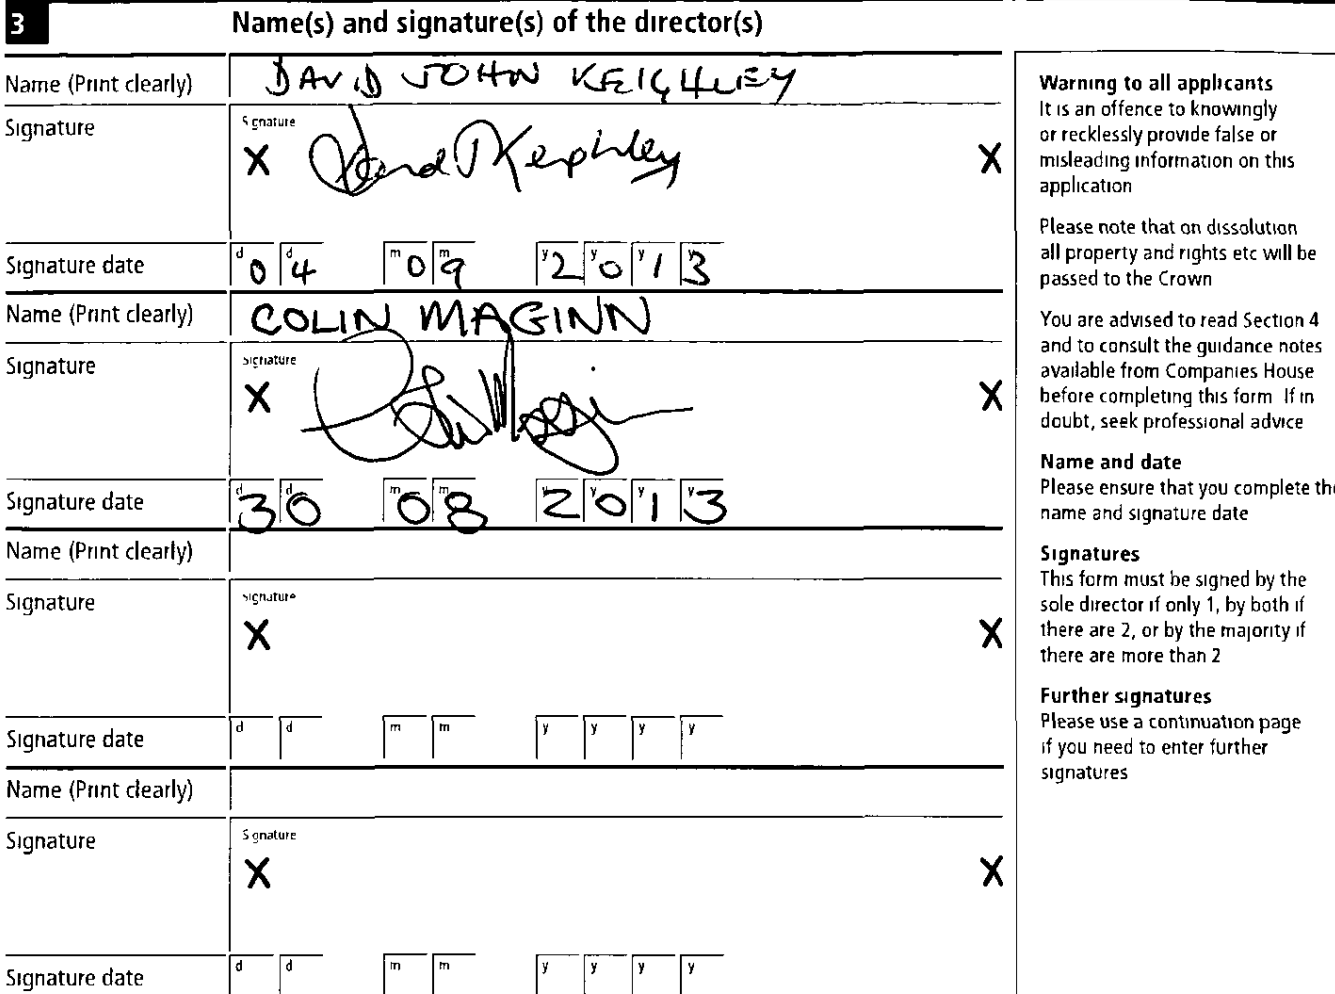 3 Name(s) and signature(s) of the director(s)
Name (Print clearly) DAVID JOHN KEIGHLEY
Signature
Signature
X X
Signature date d0 d4 m0 m9 y2 y0 y1 y3
Name (Print clearly) COLIN MAGINN
Signature
Signature
X X
Signature date d3 d0 m0 m8 y2 y0 y1 y3
Name (Print clearly)
Signature
Signature
X X
Signature date d d m m y y y y
Name (Print clearly)
Signature
Signature
X X
Signature date d d m m y y y y
Warning to all applicants
It is an offence to knowingly
or recklessly provide false or
misleading information on this
application
Please note that on dissolution
all property and rights etc will be
passed to the Crown
You are advised to read Section 4
and to consult the guidance notes
available from Companies House
before completing this form If in
doubt, seek professional advice
Name and date
Please ensure that you complete the
name and signature date
Signatures
This form must be signed by the
sole director if only 1, by both if
there are 2, or by the majority if
there are more than 2
Further signatures
Please use a continuation page
if you need to enter further
signatures